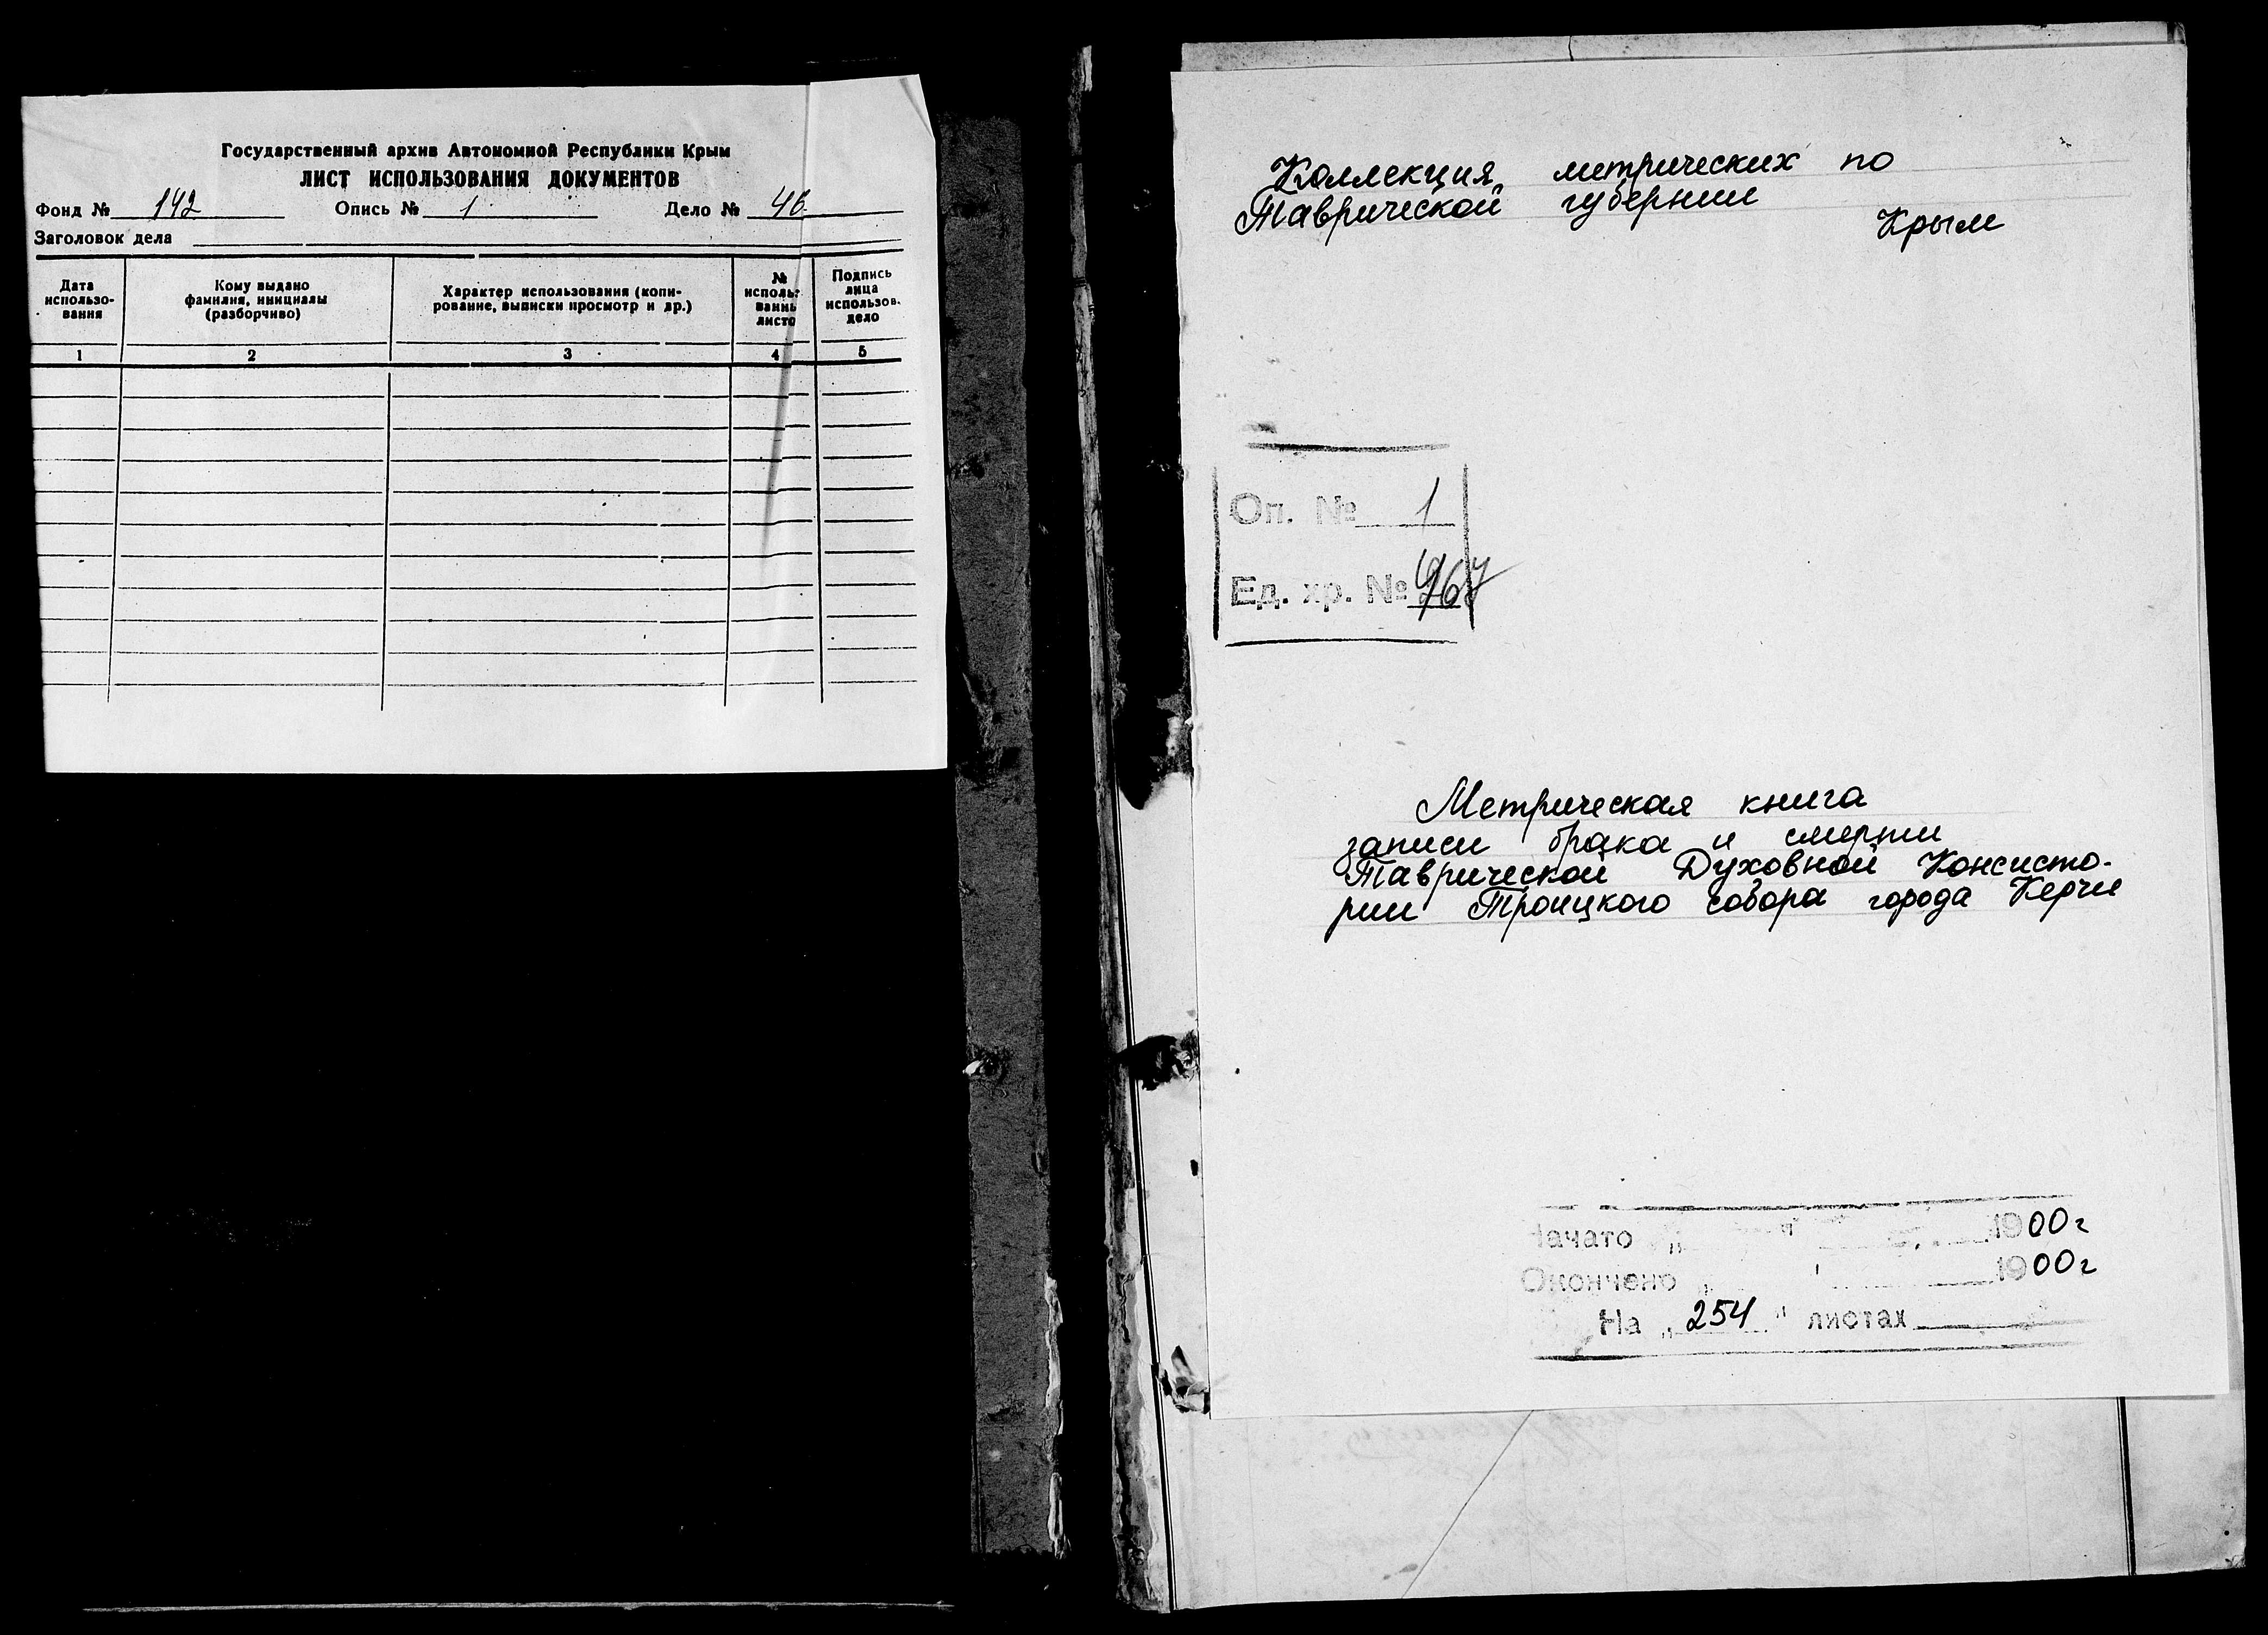 Государственный архив Автономной Республики Крым
ЛИСТ ИСПОЛЬЗОВАНИЯ ДОКУМЕНТОВ
Фонд № 142 Опись № 1 Дело № 46
Заголовок дела
Дата использо-вания
Кому выдано фамилия, инициалы (разборчиво)
Характер использования (копи-рование, выписки просмотр и др.)
№ использ ванны листо
Подпись лица использов. дело
1 2 3 4 5
Коллекция метрических по
Таврической губернии
Крым
Оп. № 1
Ед. хр. № 967
Метрическая книга
записи брака и смерти
Таврической Духовной Консисто-
рии Троицкого собора города Керчи
Начато " " 1900г
Окончено " 1900г
На „ 254 " листах